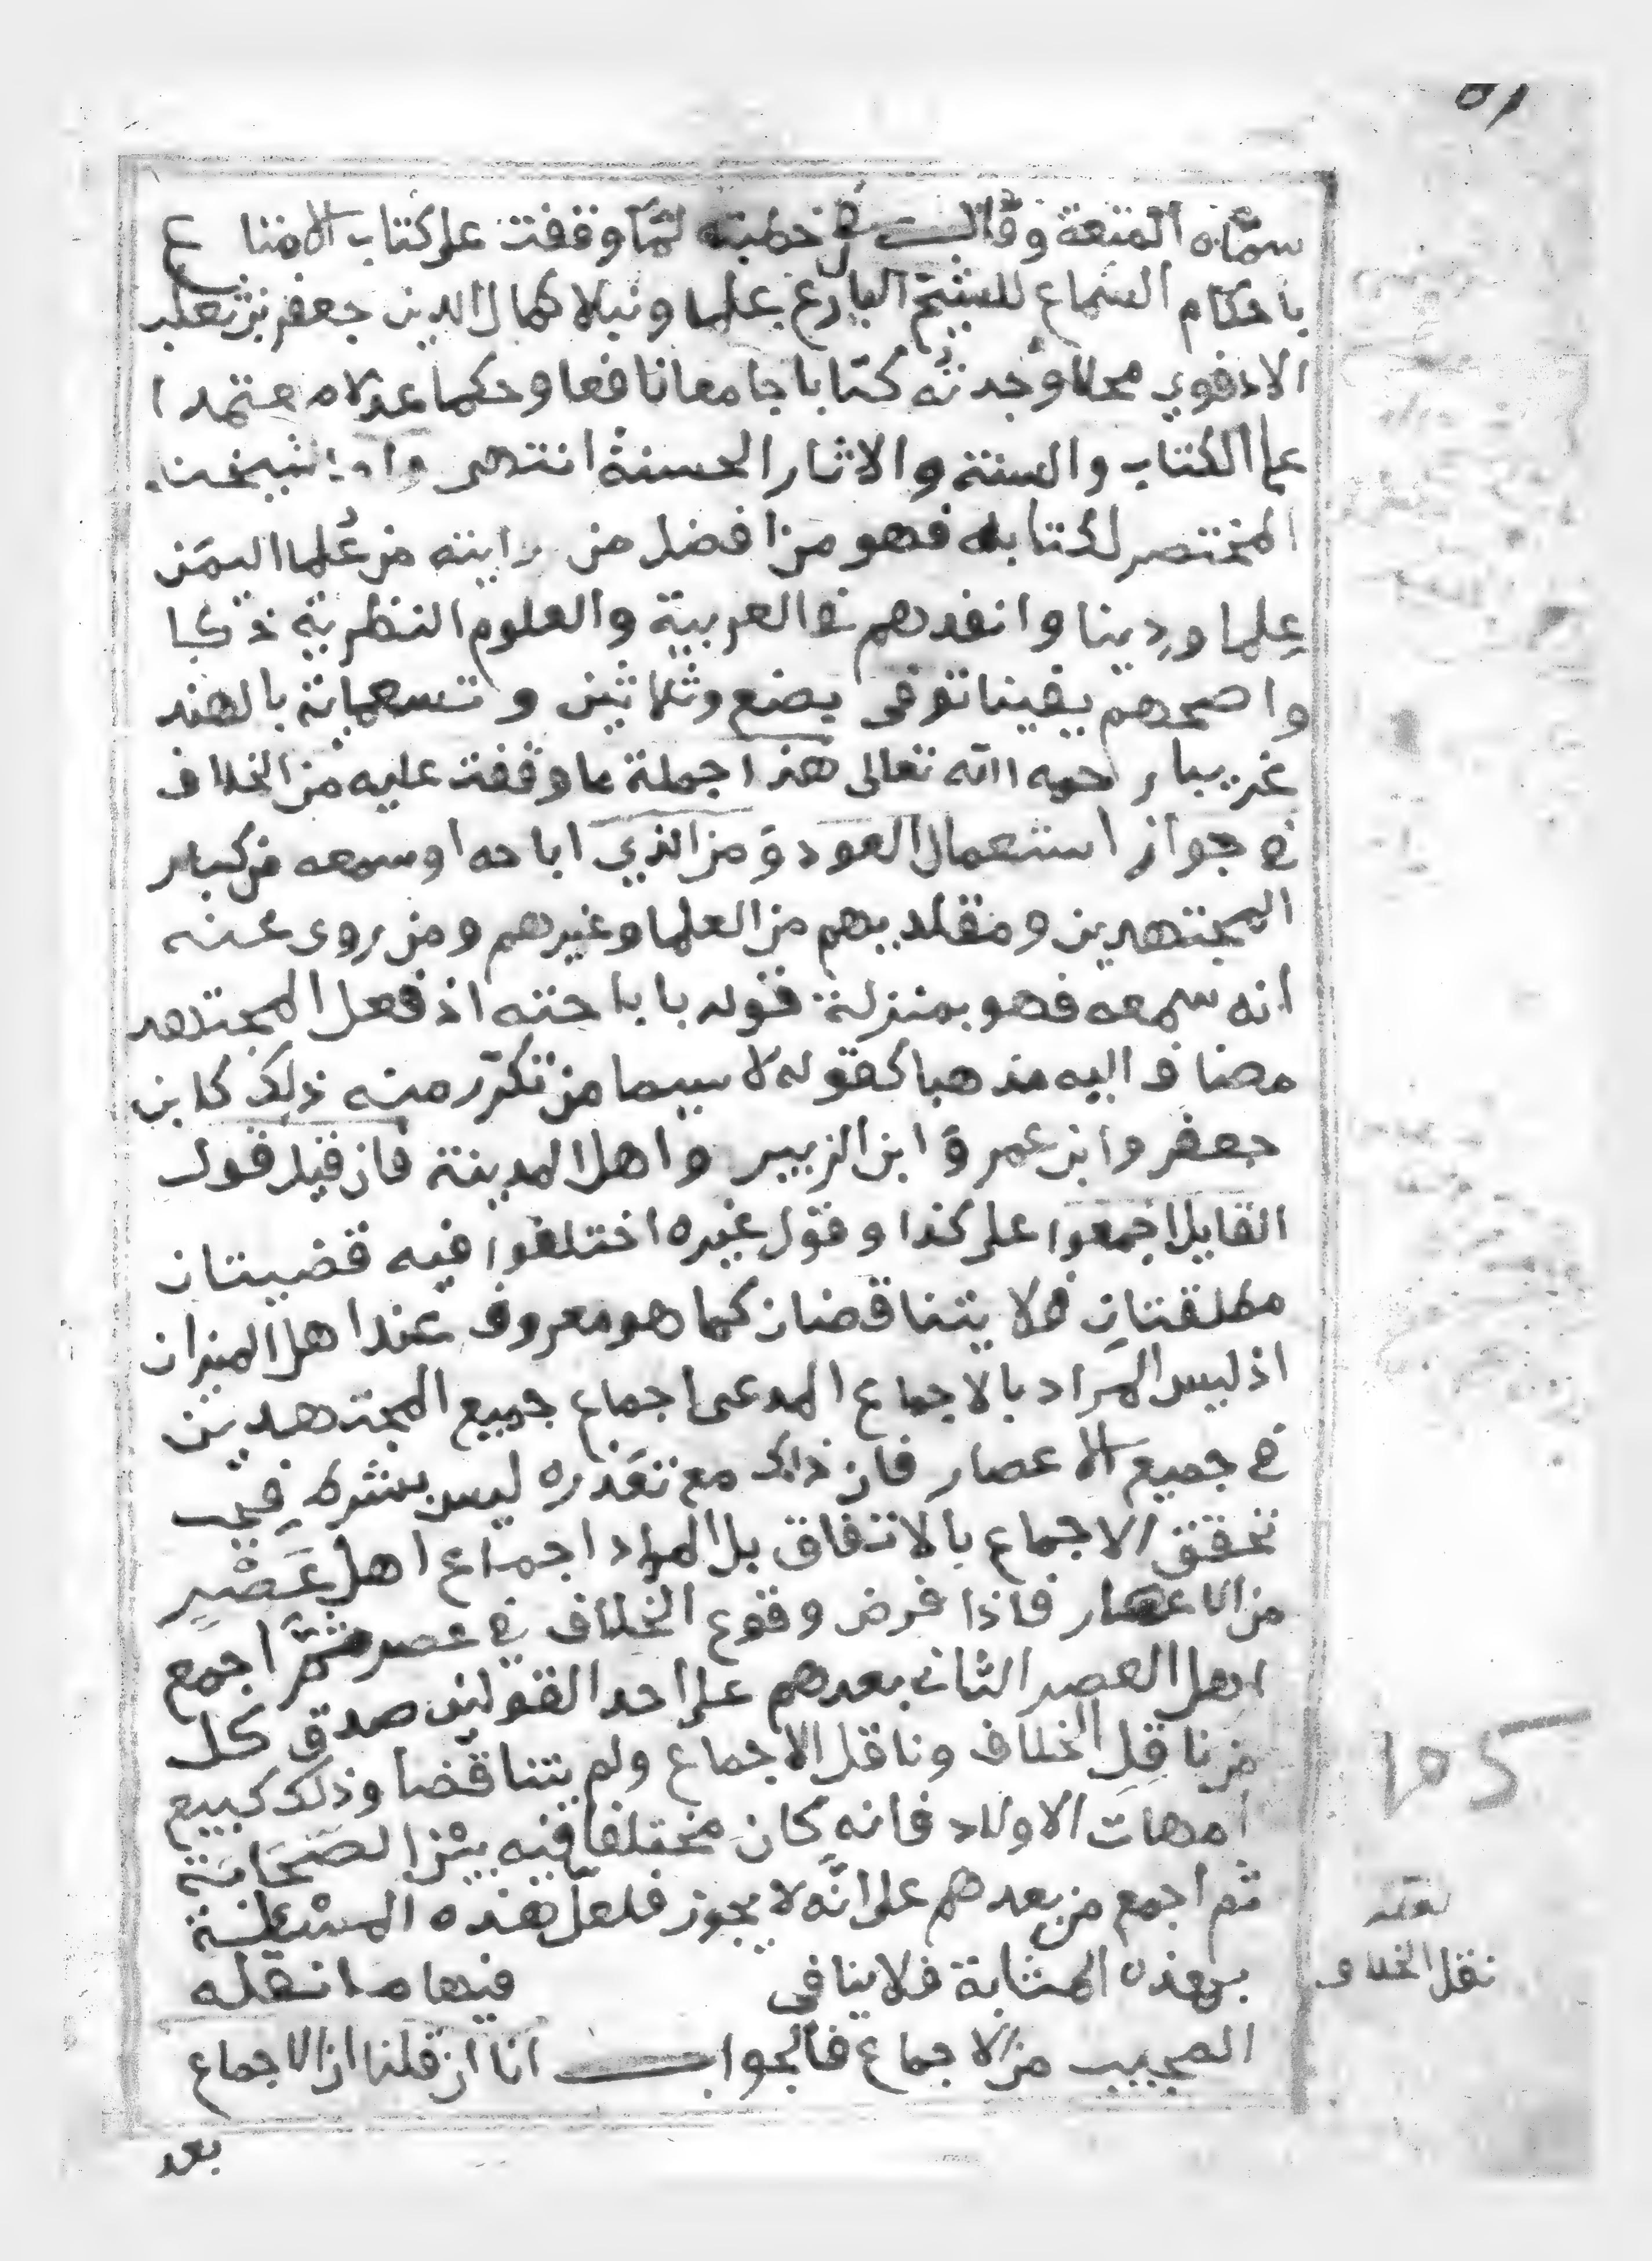 سمّاه المتعة وقال في خطبته لمّا وقفت على كتاب الامتاع
باحكام السماع للشيخ البارع علما ونبلا كمال الدين جعفر بن ثعلب
الادفوي محلا وجدته كتابا جامعا نافعا وحكما عدلا معتمدا
على الكتاب والسنة والاثار الحسنة انتهى واما شيخنا
المختصر لكتابه فهو من افضل من رايته من علما اليمن
عِلما ودِينا وانفدهم في العربية والعلوم النظرية ذكا
واصحهم يقينا توفى بضع وثلاثين وتسعماية بالهند
غريبا رحمه الله تعالى هذا جملة ما وقفت عليه من الخلاف
في جواز استعمال العود ومن الذي اباحه اوسمعه من كبار
المجتهدين ومقلديهم من العلما وغيرهم ومن روى عنه
انه سمعه فهو بمنزلة قوله باباحته اذ فعل المجتهد
مضاف اليه مذهبا كقوله لا سيما من تكرّر منه ذلك كابن
جعفر وابن عمر وابن الزبير واهل المدينة فان قيل قول
القايل اجمعوا على كذا وقول غيره اختلفوا فيه قضيتان
مطلقتان فلا يتناقضان كما هو معروف عند اهل الميزان
اذ ليس المراد بالاجماع المدعى اجماع جميع المجتهدين
في جميع الاعصار فان ذلك مع تعَذره ليس بشرط في
تحقق الاجماع بالاتفاق بل المراد اجماع اهل عَصْرٍ
من الاعصار فاذا فرض وقوع الخلاف في عصر ثمّ اجمع
اهل العصر الثاني بعدهم على احد القولين صدق كل
من ناقِل الخلاف وناقل الاجماع ولم يتناقضا وذلك كبيع
امهات الاولاد فانه كان مختلفا فيه بين الصَحَابَة
ثم اجمع من بعدهم على انّه لا يجوز فلعل هذه المسْئلة
بهذه المثابة فلا ينافي فيها ما نقله
نقل الخلاف
المجيب من الاجماع فالجواب انا ان قلنا ان الاجماع
بعد